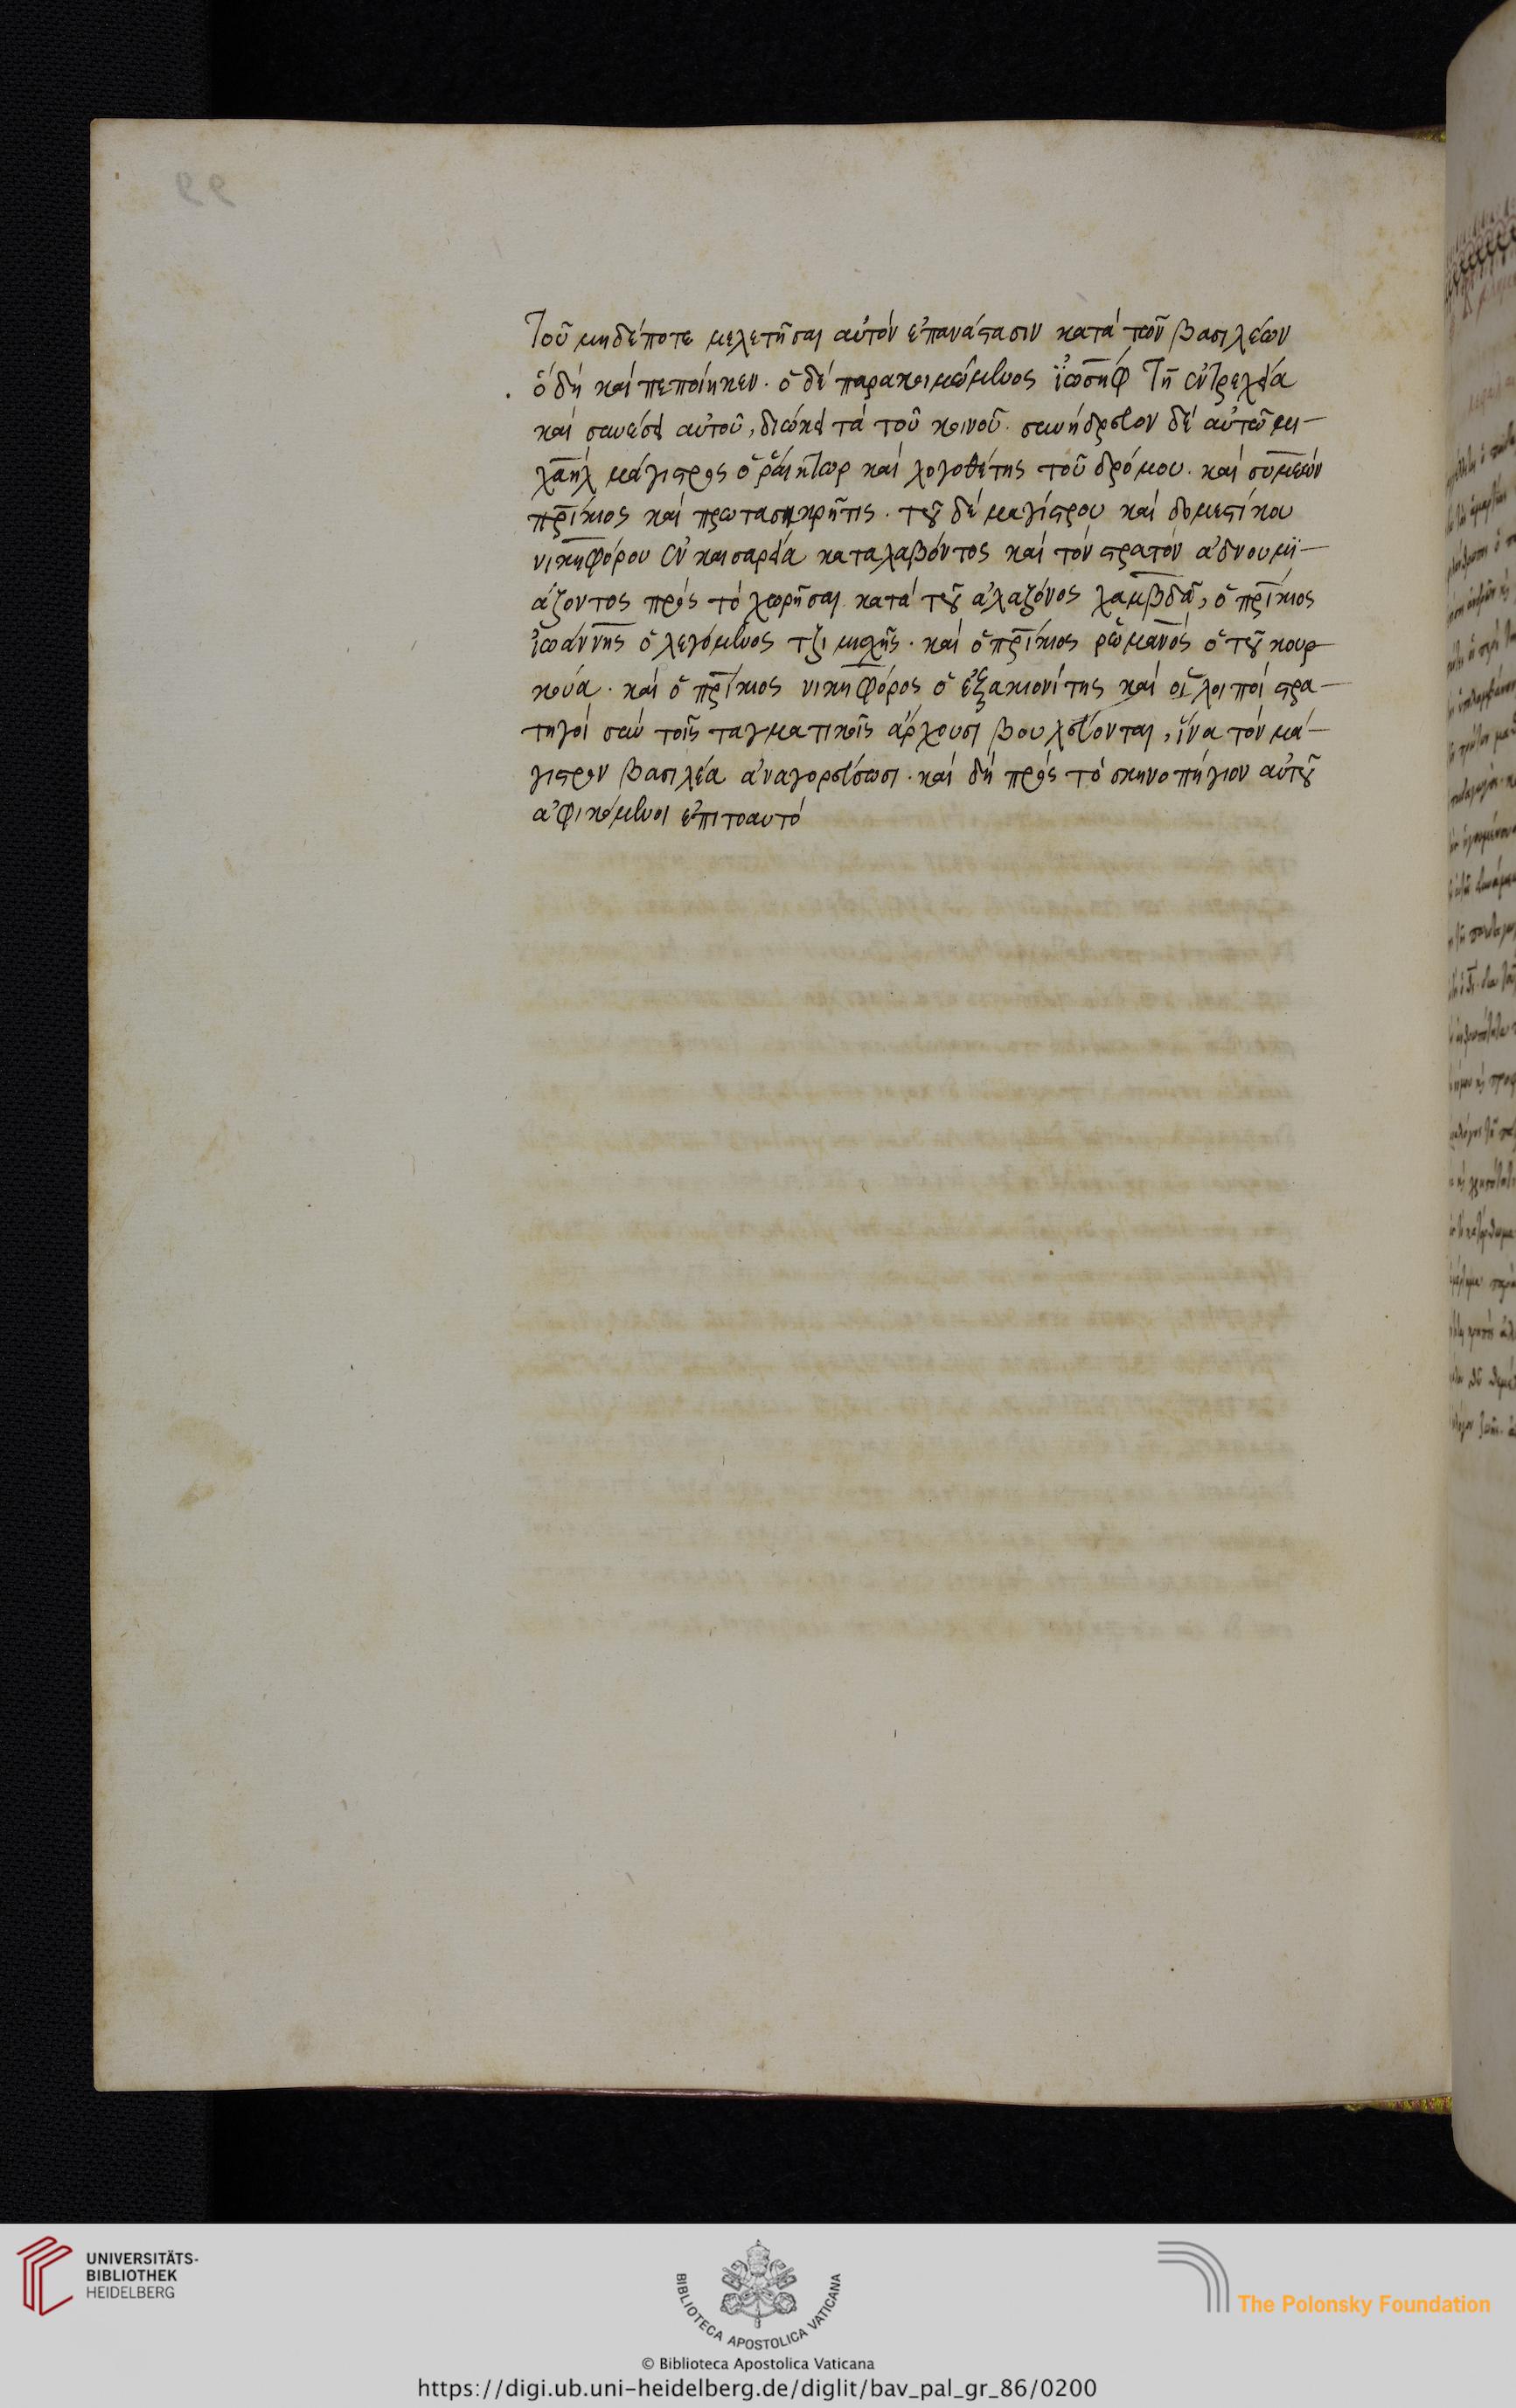 τοῦ μηδέποτε μελετῆσαι αὐτὸν ἐπανάστασιν κατὰ τῶν βασιλέων
ὃ δὴ καὶ πεποίηκεν. ὁ δὲ παρακοιμώμενος ἰωσὴφ τῇ ἐντρεχείᾳ
καὶ συνέσει αὐτοῦ, διώκει τὰ τοῦ κοινοῦ. συνήδρευον δὲ αὐτῶ μι-
χαὴλ μάγιστρος ὁ ῥαίητωρ καὶ λογοθέτης τοῦ δρόμου. καὶ συμεὼν
πρίκιος καὶ πρωτασηκρῆτις. τοῦ δὲ μαγίστρου καὶ δομεστίκου
νικηφόρου ἐν καισαρείᾳ καταλαβόντος καὶ τὸν στρατὸν ἀδνουμϊ-
άζοντος πρὸς τὸ χωρῆσαι κατὰ τοῦ ἀλαζόνος χαμβδᾶ, ὁ πρίκιος
ἰωάννης ὁ λεγόμενος τζιμισχῆς. καὶ ὁ πρίκιος ῥωμανὸς ὁ τοῦ κουρ-
κούα. καὶ ὁ πρίκιος νικηφόρος ὁ ἑξακιονίτης καὶ οἱ λοιποὶ στρα-
τηγοὶ σὺν τοῖς ταγματικοῖς ἄρχουσι βουλεύονται, ἵνα τὸν μά-
γιστρον βασιλέα ἀναγορεύσωσι. καὶ δὴ πρὸς τὸ σκηνοπήγιον αὐτοῦ
ἀφικόμενοι ἐπιτοαυτό
UNIVERSITÄTS-
BIBLIOTHEK
HEIDELBERG
BIBLIOTECA APOSTOLICA VATICANA
The Polonsky Foundation
© Biblioteca Apostolica Vaticana
https://digi.ub.uni-heidelberg.de/diglit/bav_pal_gr_86/0200